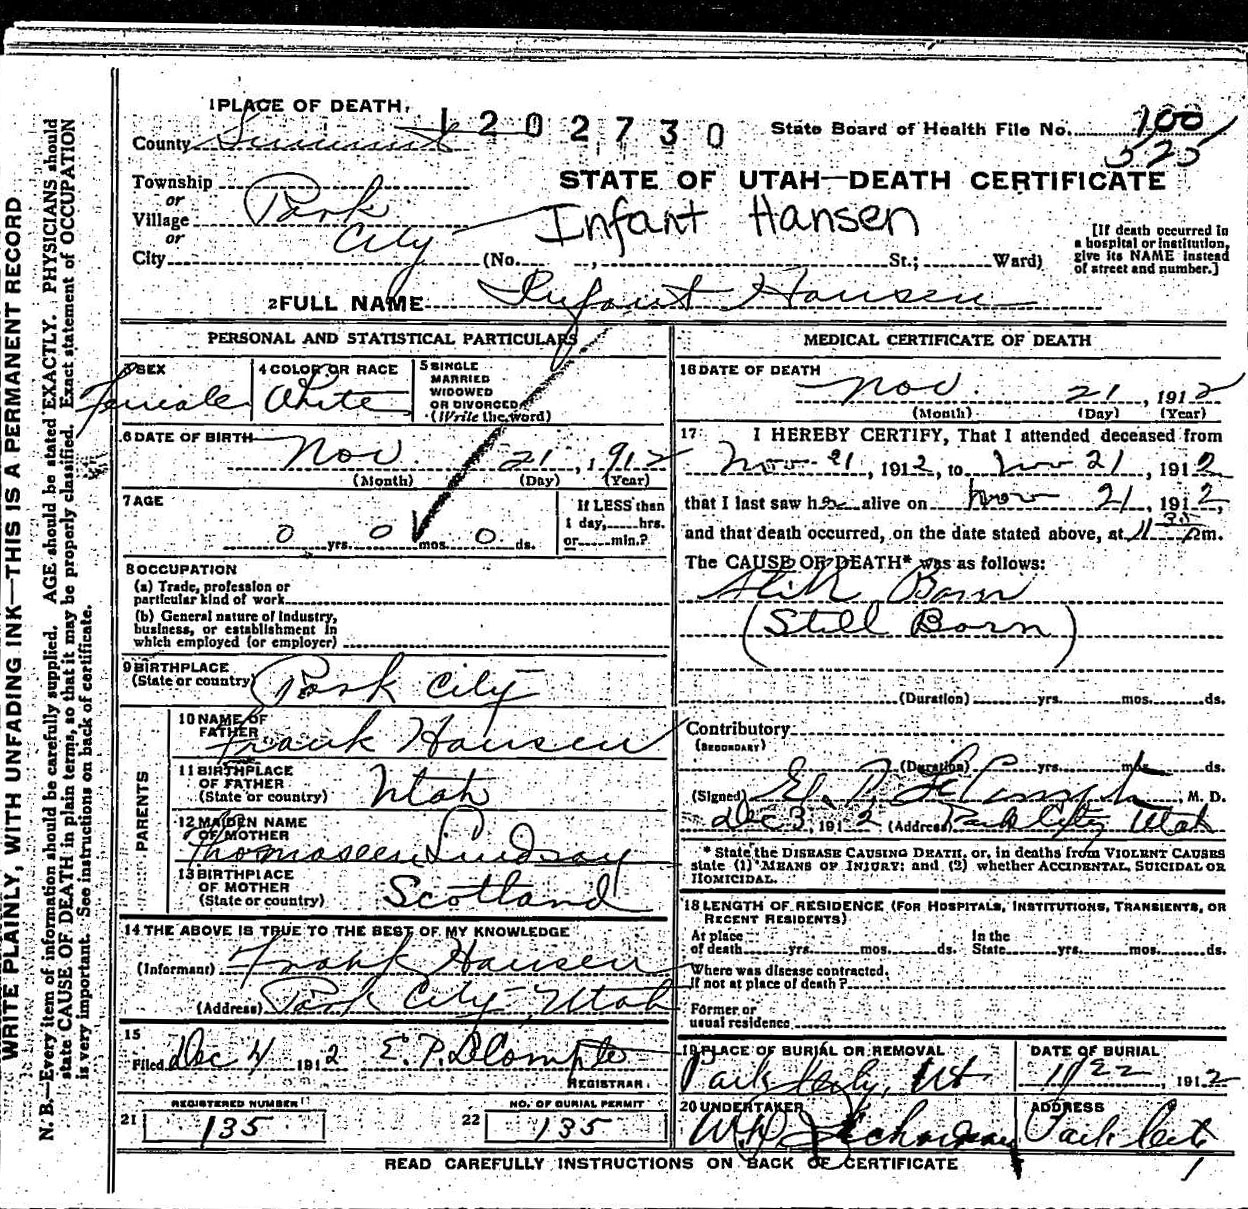 WRITE PLAINLY, WITH UNFADING INK—THIS IS A PERMANENT RECORD
N. B.—Every item of information should be carefully supplied. AGE should be stated EXACTLY. PHYSICIANS should
state CAUSE OF DEATH in plain terms, so that it may be properly classified. Exact statement of OCCUPATION
is very important. See instructions on back of certificate.
1 PLACE OF DEATH,
1202730
State Board of Health File No. 100
525
County Summit
Township
or
Village
or
City
Park
City
STATE OF UTAH—DEATH CERTIFICATE
Infant Hansen
(No. , St.; Ward)
[If death occurred in
a hospital or institution,
give its NAME instead
of street and number.]
2 FULL NAME Infant Hansen
PERSONAL AND STATISTICAL PARTICULARS
3 SEX
Female
4 COLOR OR RACE
White
5 SINGLE
MARRIED
WIDOWED
OR DIVORCED
(Write the word)
6 DATE OF BIRTH
Nov 21, 1912
(Month) (Day) (Year)
7 AGE
0 yrs. 0 mos. 0 ds.
If LESS than
1 day, hrs.
or min.?
8 OCCUPATION
(a) Trade, profession or
particular kind of work
(b) General nature of industry,
business, or establishment in
which employed (or employer)
9 BIRTHPLACE
(State or country)
Park City
PARENTS
10 NAME OF
FATHER
Frank Hansen
11 BIRTHPLACE
OF FATHER
(State or country)
Utah
12 MAIDEN NAME
OF MOTHER
Thomaseen Lindsay
13 BIRTHPLACE
OF MOTHER
(State or country)
Scotland
14 THE ABOVE IS TRUE TO THE BEST OF MY KNOWLEDGE
(Informant) Frank Hansen
(Address) Park City, Utah
15
Filed Dec 4 1912 E. P. LeCompte
REGISTRAR
REGISTERED NUMBER
21 135
NO. OF BURIAL PERMIT
22 135
MEDICAL CERTIFICATE OF DEATH
16 DATE OF DEATH
Nov 21, 1912
(Month) (Day) (Year)
17 I HEREBY CERTIFY, That I attended deceased from
Nov 21, 1912, to Nov 21, 1912
that I last saw h alive on Nov 21, 1912,
and that death occurred, on the date stated above, at 11 35 m.
The CAUSE OF DEATH* was as follows:
Still Born
(Still Born)
(Duration) yrs. mos. ds.
Contributory
(SECONDARY)
(Duration) yrs. mos. ds.
(Signed) E. P. LeCompte, M. D.
Dec 3, 1912 (Address) Park City Utah
* State the DISEASE CAUSING DEATH, or, in deaths from VIOLENT CAUSES
state (1) MEANS OF INJURY; and (2) whether ACCIDENTAL, SUICIDAL OR
HOMICIDAL.
18 LENGTH OF RESIDENCE (FOR HOSPITALS, INSTITUTIONS, TRANSIENTS, OR
RECENT RESIDENTS)
At place
of death yrs. mos. ds.
In the
State yrs. mos. ds.
Where was disease contracted,
If not at place of death?
Former or
usual residence
19 PLACE OF BURIAL OR REMOVAL
Park City, Ut
DATE OF BURIAL
11/22, 1912
20 UNDERTAKER
ADDRESS
Park City
READ CAREFULLY INSTRUCTIONS ON BACK OF CERTIFICATE